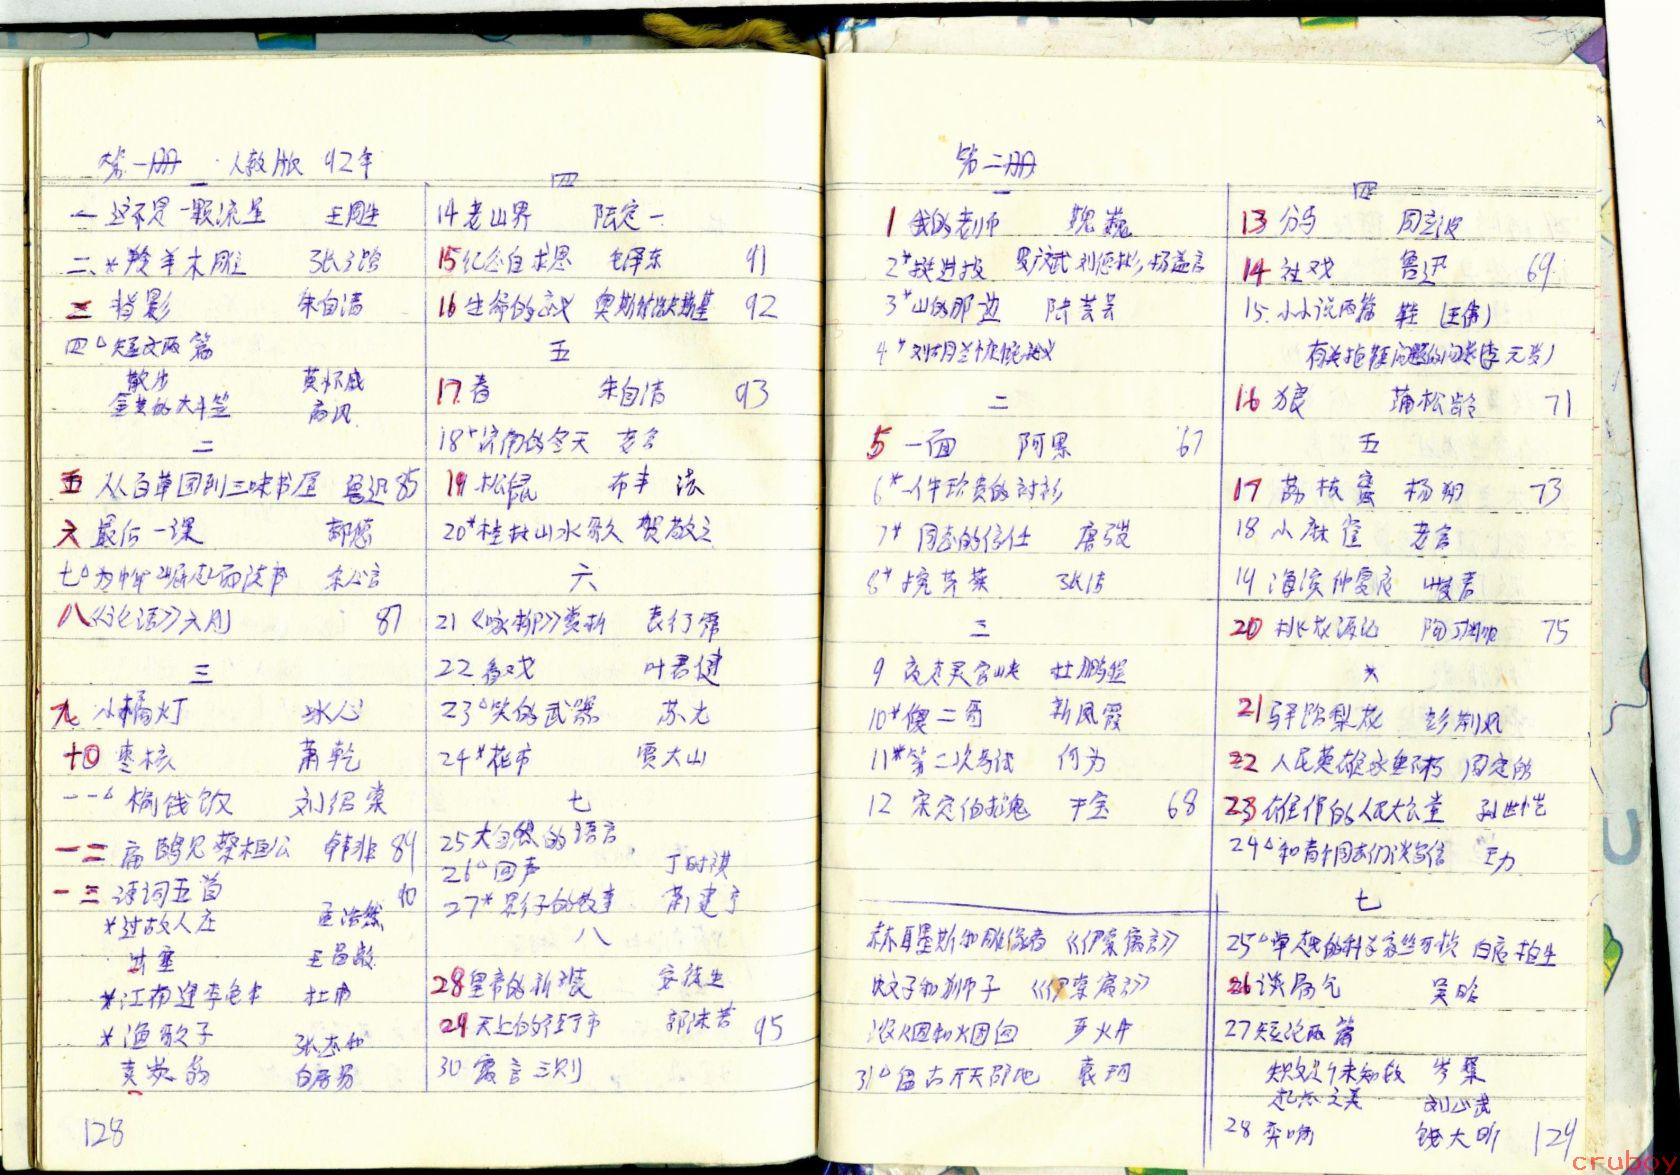 第一册 人教版 92年
一
一 这不是一颗流星 王周生
二、*羚羊木雕 张之路
三 背影 朱自清
四△短文两篇
散步 莫怀戚
金黄的大斗笠 高风
二
五 从百草园到三味书屋 鲁迅 85
六 最后一课 都德
七△为中华崛起而读书 余心言
八《论语》六则 87
三
九 小橘灯 冰心
十 枣核 萧乾
一一△ 榆钱饭 刘绍棠
一二 扁鹊见蔡桓公 韩非 89
一三 诗词五首 90
*过故人庄 孟浩然
出塞
*江南逢李龟年 杜甫
*渔歌子 张志和
卖炭翁 白居易
128
四
14 老山界 陆定一
15 纪念白求恩 毛泽东 91
16 生命的意义 奥斯特洛夫斯基 92
五
17 春 朱自清 93
18*济南的冬天 老舍
19 松鼠 布丰 法
20*桂林山水歌 贺敬之
六
21《咏柳》赏析 袁行霈
22 看戏 叶君健
23△笑的武器 苏尤
24*花市 贾大山
七
25 大自然的语言
26△回声 丁时祺
27* 果子的故事 萧建亨
八
28 皇帝的新装 安徒生
29 天上的街市 郭沫若 95
30 寓言三则
第二册
一
1 我的老师 魏巍
2*挺进报 罗广斌 刘德彬 杨益言
3*山的那边 陆芸芸
4*
二
5 一面 阿累 67
6*一件珍贵的衬衫
7* 同志的信任 唐弢
8* 挖荠菜 张洁
三
9 夜走灵官峡 杜鹏程
10*傻二哥 新凤霞
11*第二次考试 何为
12 宋定伯捉鬼 干宝 68
赫耳墨斯和雕像者 《伊索寓言》
蚊子和狮子 《伊索寓言》
浓烟和烟囱
31△盘古开天辟地 袁珂
四
13 分马 周立波
14 社戏 鲁迅 69
15 小小说两篇 鞋 (王伟)
16 狼 蒲松龄 71
五
17 荔枝蜜 杨朔 73
18 小麻雀 老舍
19 海滨仲夏夜 峻青
20 桃花源记 陶渊明 75
六
21 驿路梨花 彭荆风
22 人民英雄永垂不朽 周定舫
23 雄伟的人民大会堂 孙世恺
24△和青年同志们谈写信 王力
七
25△卓越的科学家竺可桢 白夜 柏生
26 谈骨气 吴晗
27 短论两篇
岑桑
起点之美 刘心武
28 弈喻 钱大昕
129
cruboy